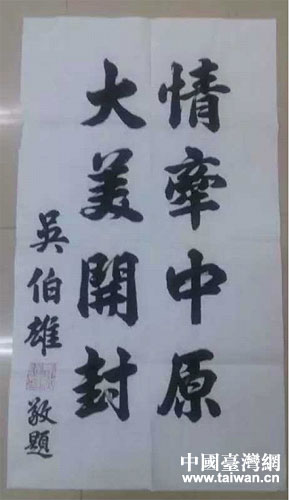 情牽中原
大美開封
吳伯雄 敬題
中國臺灣網
www.taiwan.cn